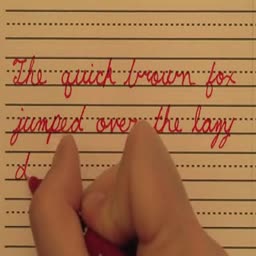 The quick brown fox
jumped over the lazy
d